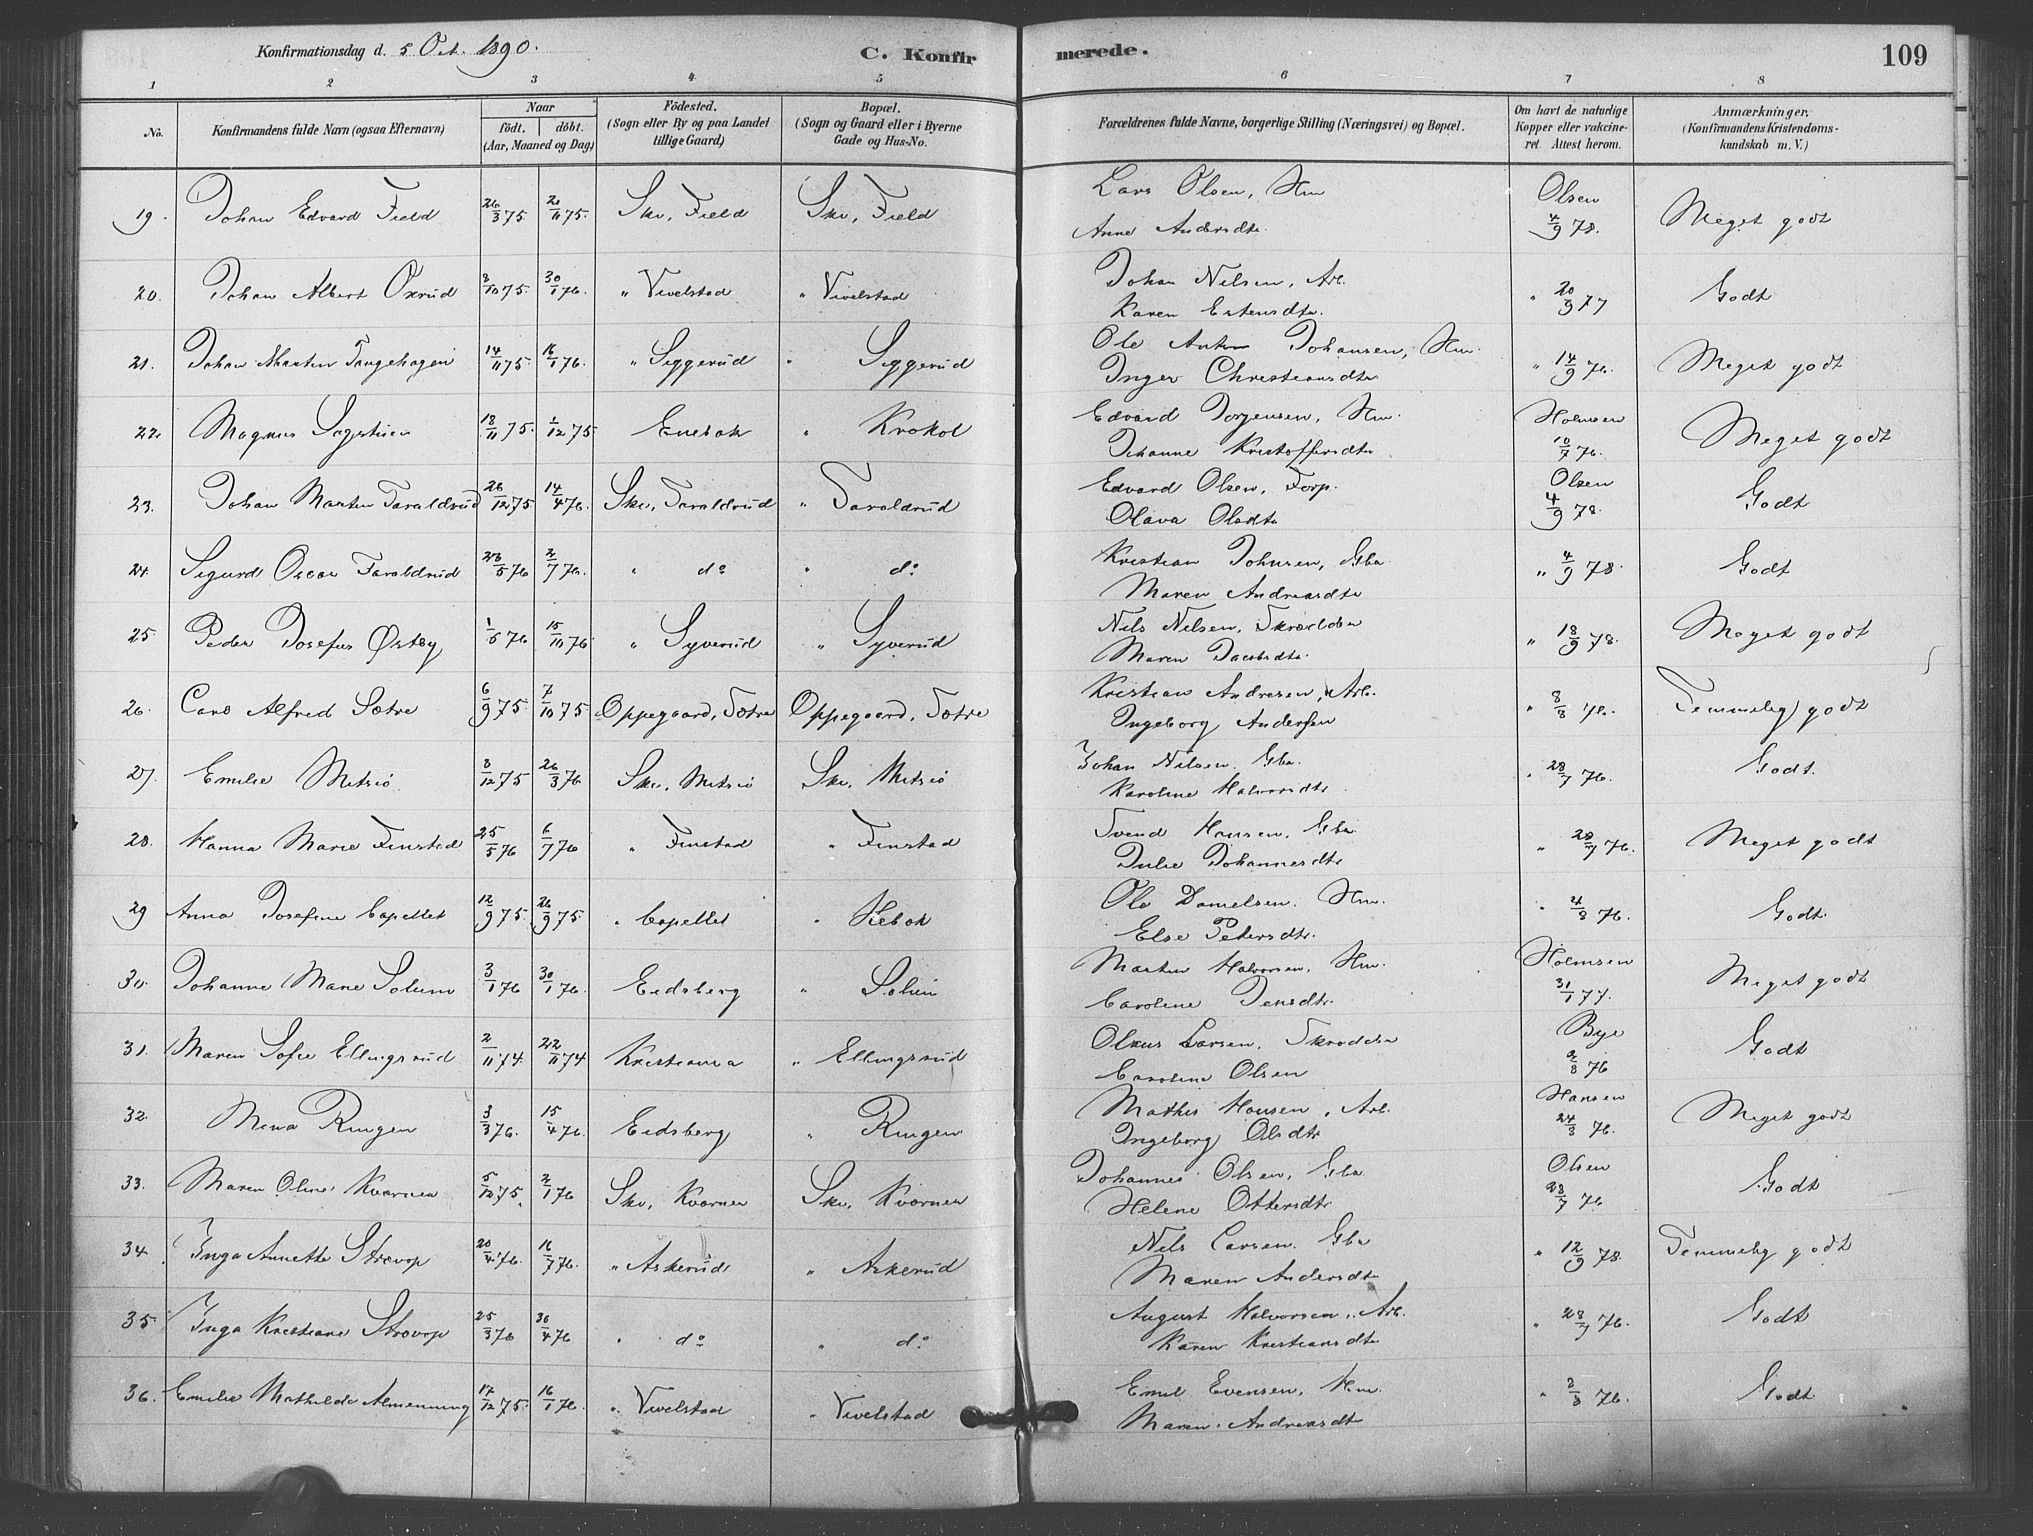 Konfirmationsdag d. 5 Oct. 1890.
C. Konfirmerede.
109
1 2 3 4 5 6 7 8
No. Konfirmandens fulde Navn (ogsaa Efternavn) Naar födt. döbt. (Aar, Maaned og Dag) Födested. (Sogn eller By og paa Landet tillige Gaard) Bopæl. (Sogn og Gaard eller i Byerne Gade og Hus-No. Forældrenes fulde Navne, borgerlige Stilling (Næringsvei) og Bopæl. Om havt de naturlige Kopper eller vakcineret. Attest herom. Anmærkninger. (Konfirmandens Kristendomskundskab m. V.)
19. Johan Edvard Field 26/3 75 21/11 75. Ski, Field Ski, Field Lars Olsen, Hm Olsen Meget godt
Anne Andersdtr. 4/9 78.
20. Johan Albert Oxrud 3/10 75. 30/1 76. " Vevelstad " Vevelstad Johan Nilsen, Arb. " 20/9 77 Godt
Karen Estensdtr.
21. Johan Martin Tangehagen 14/11 75 16/1 76. " Siggerud " Siggerud Ole Anton Johansen, Hm. " 14/9 76. Meget godt
Inger Christiansdtr
22. Magnus Sagstuen 18/11 75. 1/12 75 Enebak " Krokol Edvard Jorgensen, Hm. Holmsen Meget godt
Johanne Kristoffersdtr 10/7 76.
23. Johan Martin Taraldrud 26/12 75 14/4 76. Ski, Taraldrud " Taraldrud Edvard Olsen, Forp. Olsen Godt
Olava Olsdtr 4/9 78.
24. Sigurd Oscar Taraldrud 23/5 76 2/7 76. " do " do Kristian Johnsen, Gba " 4/9 78. Godt
Maren Andreasdtr
25. Peder Josefus Østby 1/5 76 15/10 76 " Syverud " Syverud Nils Nilsen, Skrædder " 18/9 78. Meget godt
Maren Jacobsdtr.
26. Carl Alfred Sætre 6/9 75. 7/10 75 Oppegaard, Sætre Oppegaard, Sætre Kristian Andresen, Arb. " 8/8 76. Temmelig godt
Ingeborg Andersen
27. Emilie Mitsiö 8/12 75 26/3 76 Ski, Mitsiö Ski, Mitsiö Johan Nilsen, Gba. " 28/7 76. Godt.
Karoline Halvorsdtr.
28. Hanna Marie Finstad 25/5 76 6/7 76 " Finstad " Finstad Svend Hansen, Gba " 28/7 76. Meget godt
Julie Johannesdtr
29 Anna Josefine Capellet 12/9 75. 26/9 75. " Capellet " Hebok Ole Danielsen, Hm. " 21/8 76. Godt.
Else Petersdtr.
30. Johanne Marie Solum 3/1 76 30/1 76. Eidsberg " Solum Martin Halvorsen, Hm. Holmsen Meget godt
Caroline Jensdtr. 31/1 77.
31. Maren Sofie Ellingsrud 2/11 74. 22/11 74 Kristiania " Ellingsrud Olaus Larsen, Skrædder Bye Godt
Caroline Olsen 2/8 76
32. Mina Ringen 3/3 76. 15/4 76. Eidsberg " Ringen Mathis Hansen, Arb. Hansen Meget godt
Ingeborg Olsdtr 24/8 76.
33. Maren Oline Kværnen 5/12 75. 2/1 76 Ski, Kværnen Ski, Kværnen Johannes Olsen, Gba Olsen Godt
Helene Ottersdtr 28/7 76.
34. Inga Annette Strøvop 20/4 76. 16/7 76. " Askerud " Askerud Nils Larsen, Gba " 12/9 78. Temmelig godt
Maren Andersdtr
35 Inga Kristiane Strøvop 25/3 76 30/4 76 " do " do August Halvorsen, Arb. " 28/7 76. Godt
Karen Kristiansdtr
36. Emilie Mathilde Almenning 17/12 75. 16/1 76. " Vevelstad " Vevelstad Emil Evensen, Hm. " 2/8 76. Godt
Maren Andreasdtr